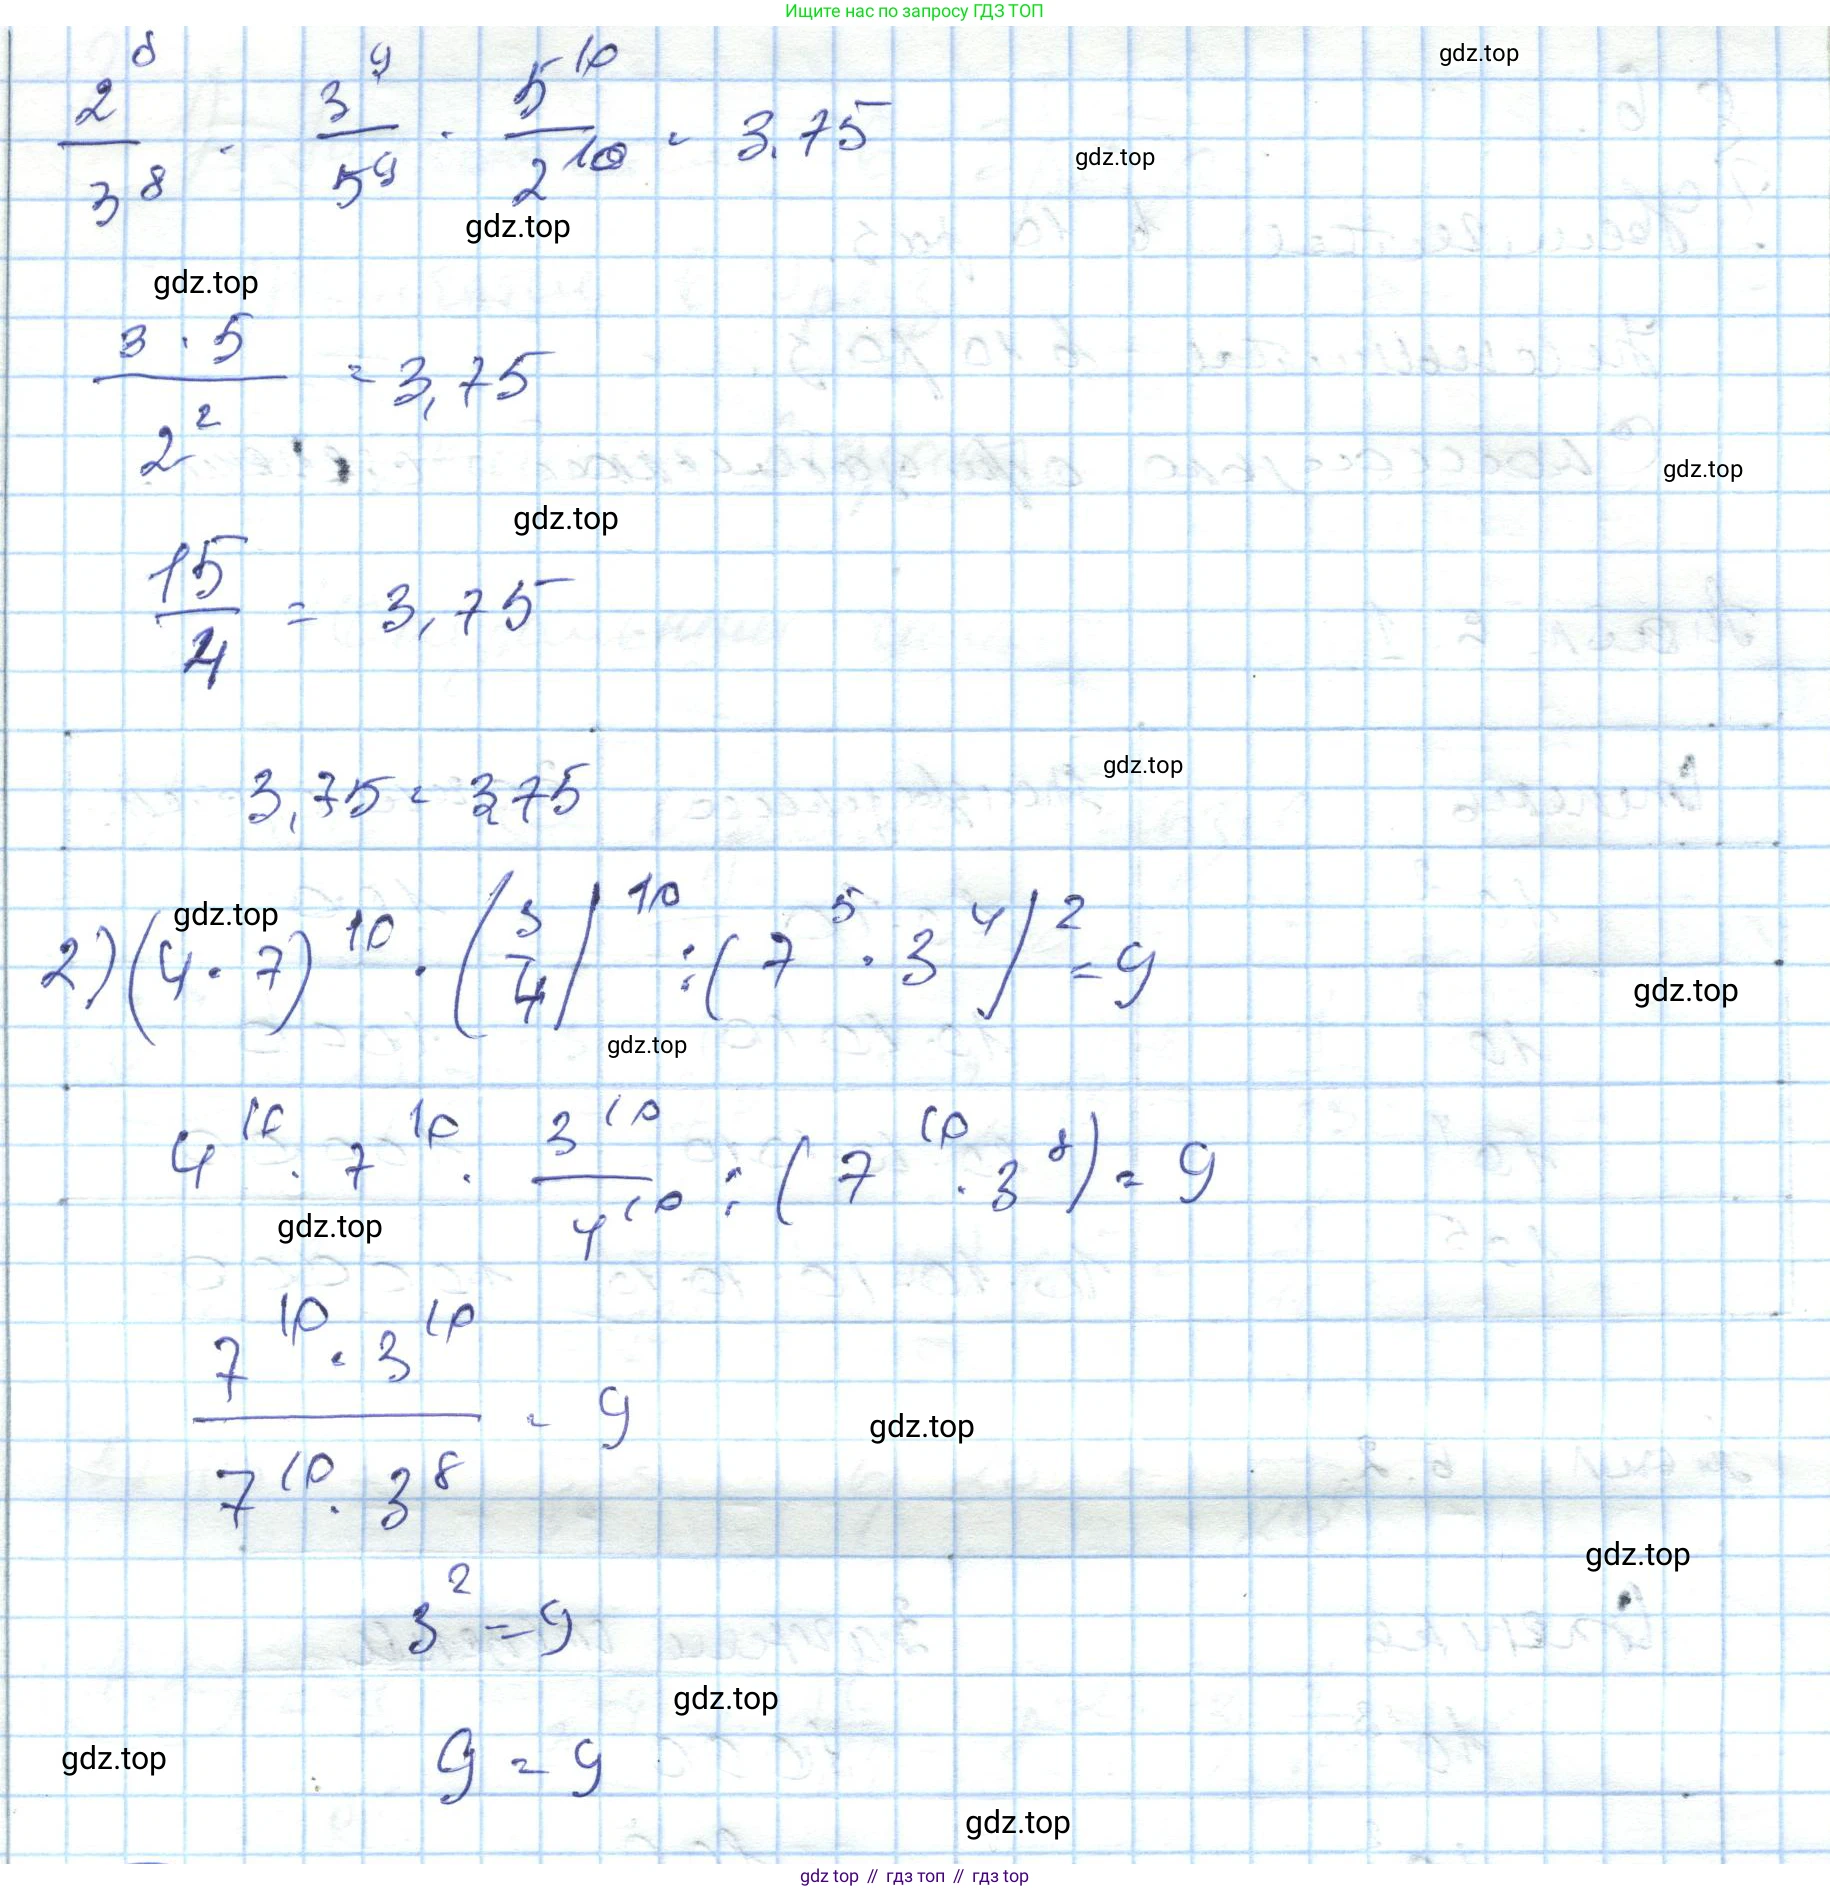 Ищите нас по запросу ГДЗ ТОП
gdz.top
2^8/3^8 · 3^9/5^9 · 5^10/2^10 = 3,75
gdz.top
gdz.top
gdz.top
3 · 5/2^2 = 3,75
gdz.top
gdz.top
15/4 = 3,75
gdz.top
3,75 = 3,75
gdz.top
2) (4 · 7)^10 · (3/4)^10 : (7^5 · 3^4)^2 = 9
gdz.top
gdz.top
4^10 · 7^10 · 3^10/4^10 : (7^10 · 3^8) = 9
gdz.top
7^10 · 3^10/7^10 · 3^8 = 9
gdz.top
gdz.top
3^2 = 9
gdz.top
gdz.top
9 = 9
gdz.top
gdz top // гдз топ // гдз top